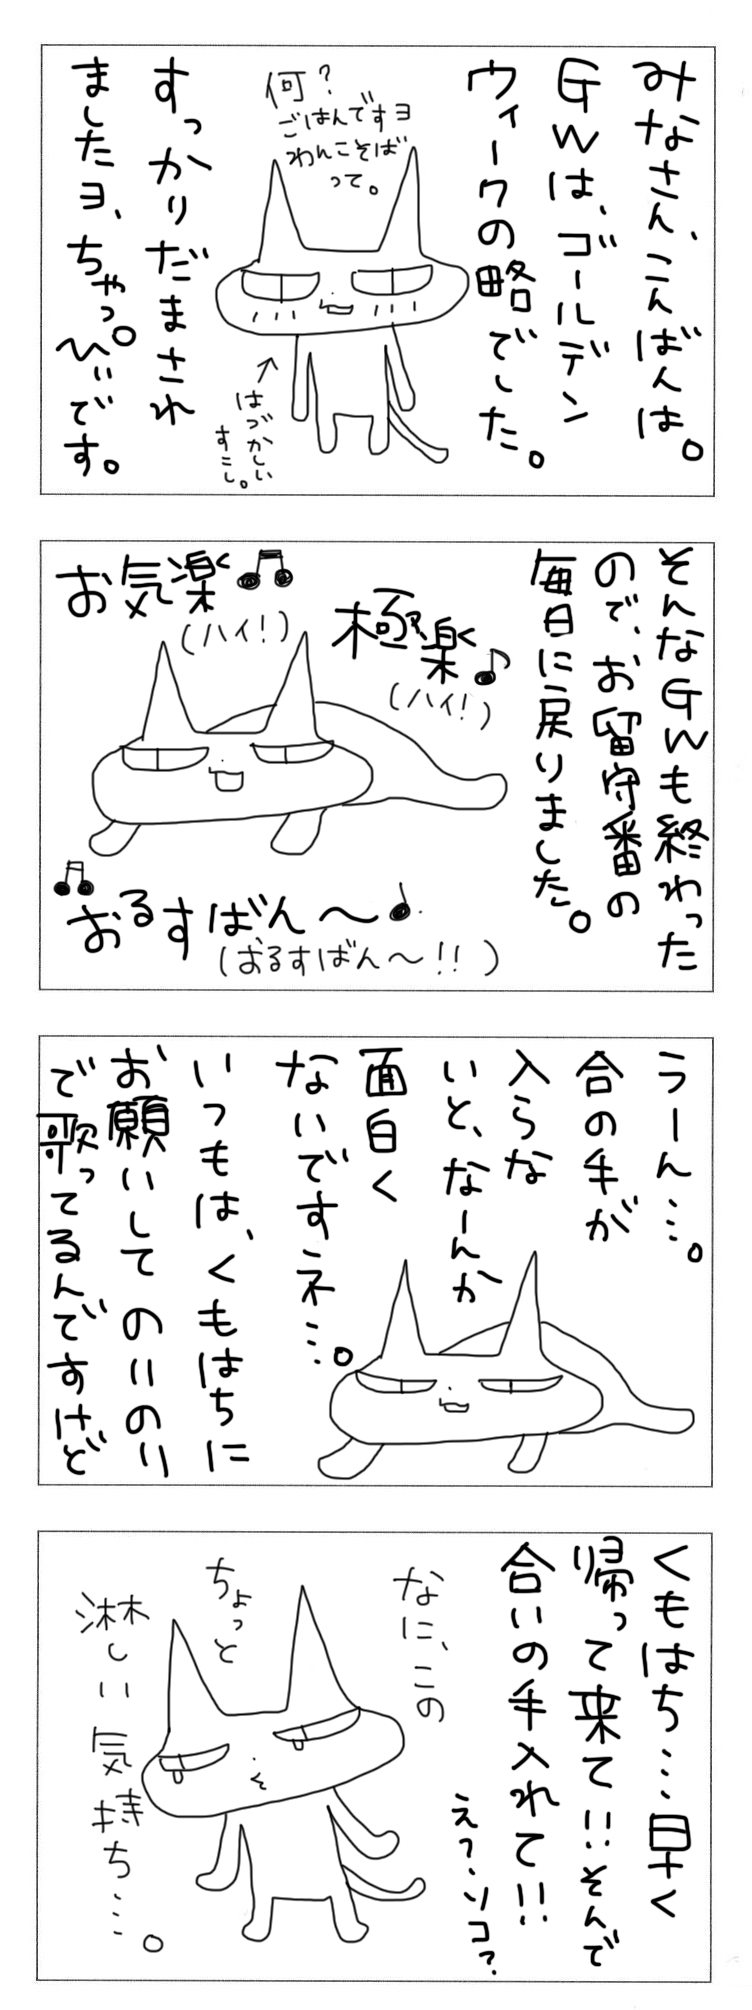 みなさん、こんばんは。
GWは、ゴールデン
ウィークの略でした。
何?
ごはんですヨ
わんこそば
って。
はづかしい
すこし。
すっかりだまされ
ましたヨ、ちゃっ。
ひぃです。
そんなGWも終わった
ので、お留守番の
毎日に戻りました。
極楽♪
(ハイ!)
お気楽♫
(ハイ!)
♫おるすばん〜♩
(おるすばん〜!!)
うーん…。
合の手が
入らな
いと、なーんか
面白く
ないですネ…。
いつもは、くもはちに
お願いしてのりのり
で歌ってるんですけど
くもはち…早く
帰って来て!!そんで
合いの手入れて!!
え?・ソコ?
なに、この
ちょっと
淋しい気持ち…。